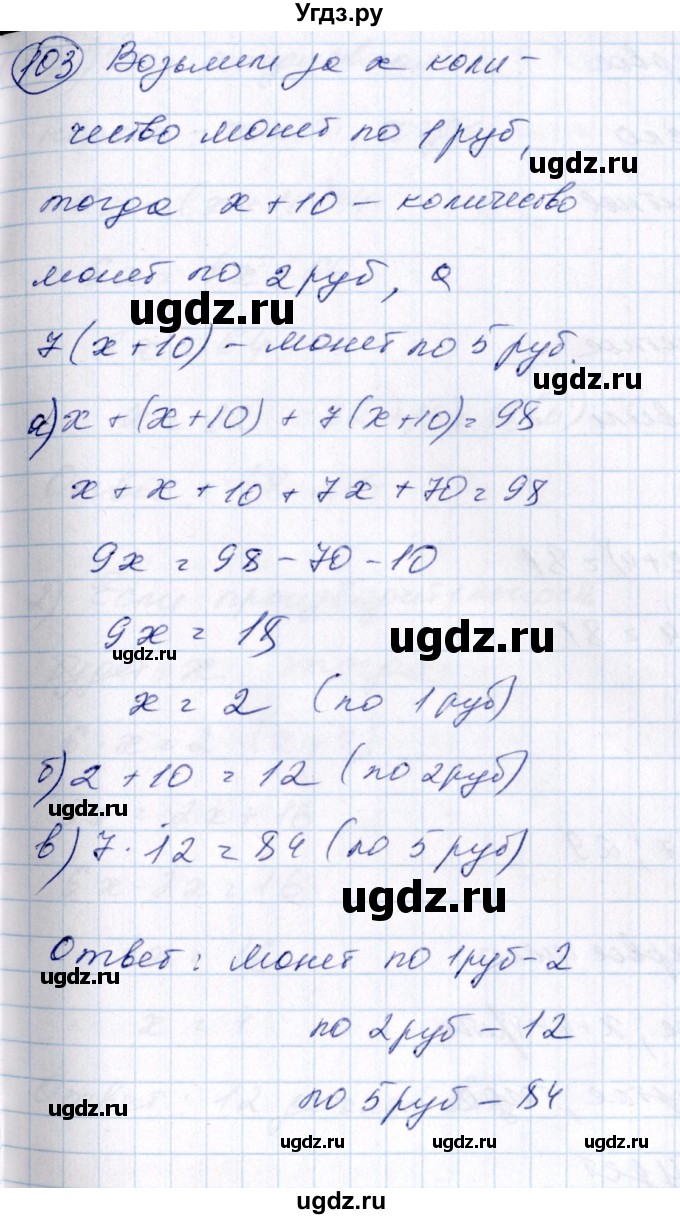 Угдз.ру
103 Возьмем за x коли-
чество монет по 1 руб,
ugdz.ru
тогда x + 10 – количество
монет по 2 руб, а
ugdz.ru
7(x+10) – монет по 5 руб.
ugdz.ru
а) x + (x+10) + 7(x+10) = 98
x + x + 10 + 7x + 70 = 98
9x = 98 - 70 - 10
9x = 18
ugdz.ru
ugdz.ru
x = 2 (по 1 руб)
б) 2 + 10 = 12 (по 2 руб)
ugdz.ru
в) 7 · 12 = 84 (по 5 руб)
ugdz.ru
Ответ: монет по 1 руб – 2
ugdz.ru
по 2 руб – 12
по 5 руб – 84
ugdz.ru
ugdz.ru ugdz.ru ugdz.ru
ugdz.ru